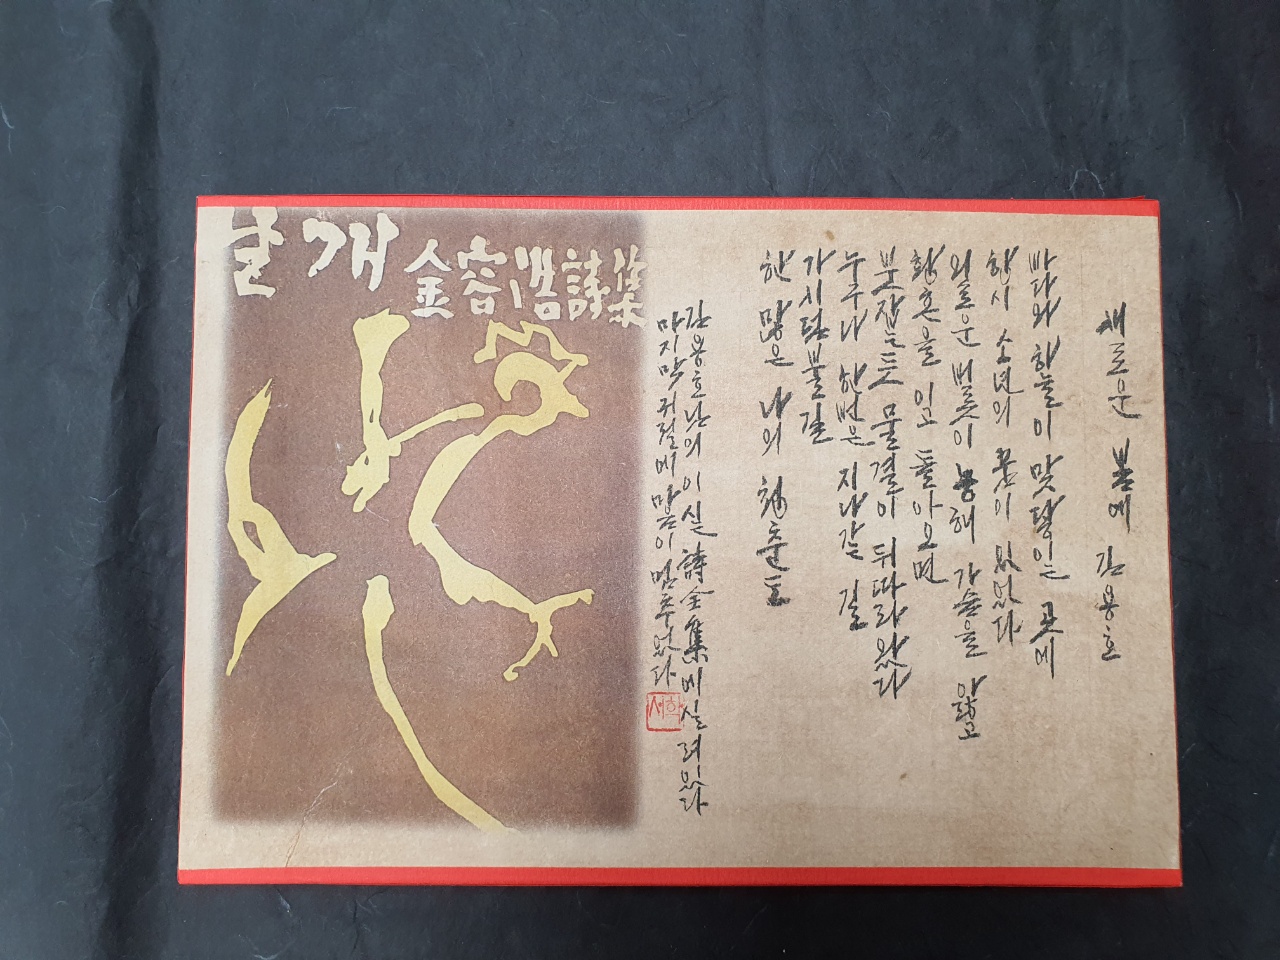 새로운 봄에 김용호
바다와 하늘이 맞닿는 곳에
항시 소년의 꿈이 있었다
외로운 버릇이 농해 가슴을 앓고
황혼을 이고 돌아오면
분잡는듯 물결이 뒤따라 왔다
누구나 한번은 지나갈 길
가시덤불 길
한 많은 나의 靑춘도
김용호 난의 이실 詩全集에 실려있다
마지막 귀절에 마음이 멈추었다
서학
날개
金容浩詩集